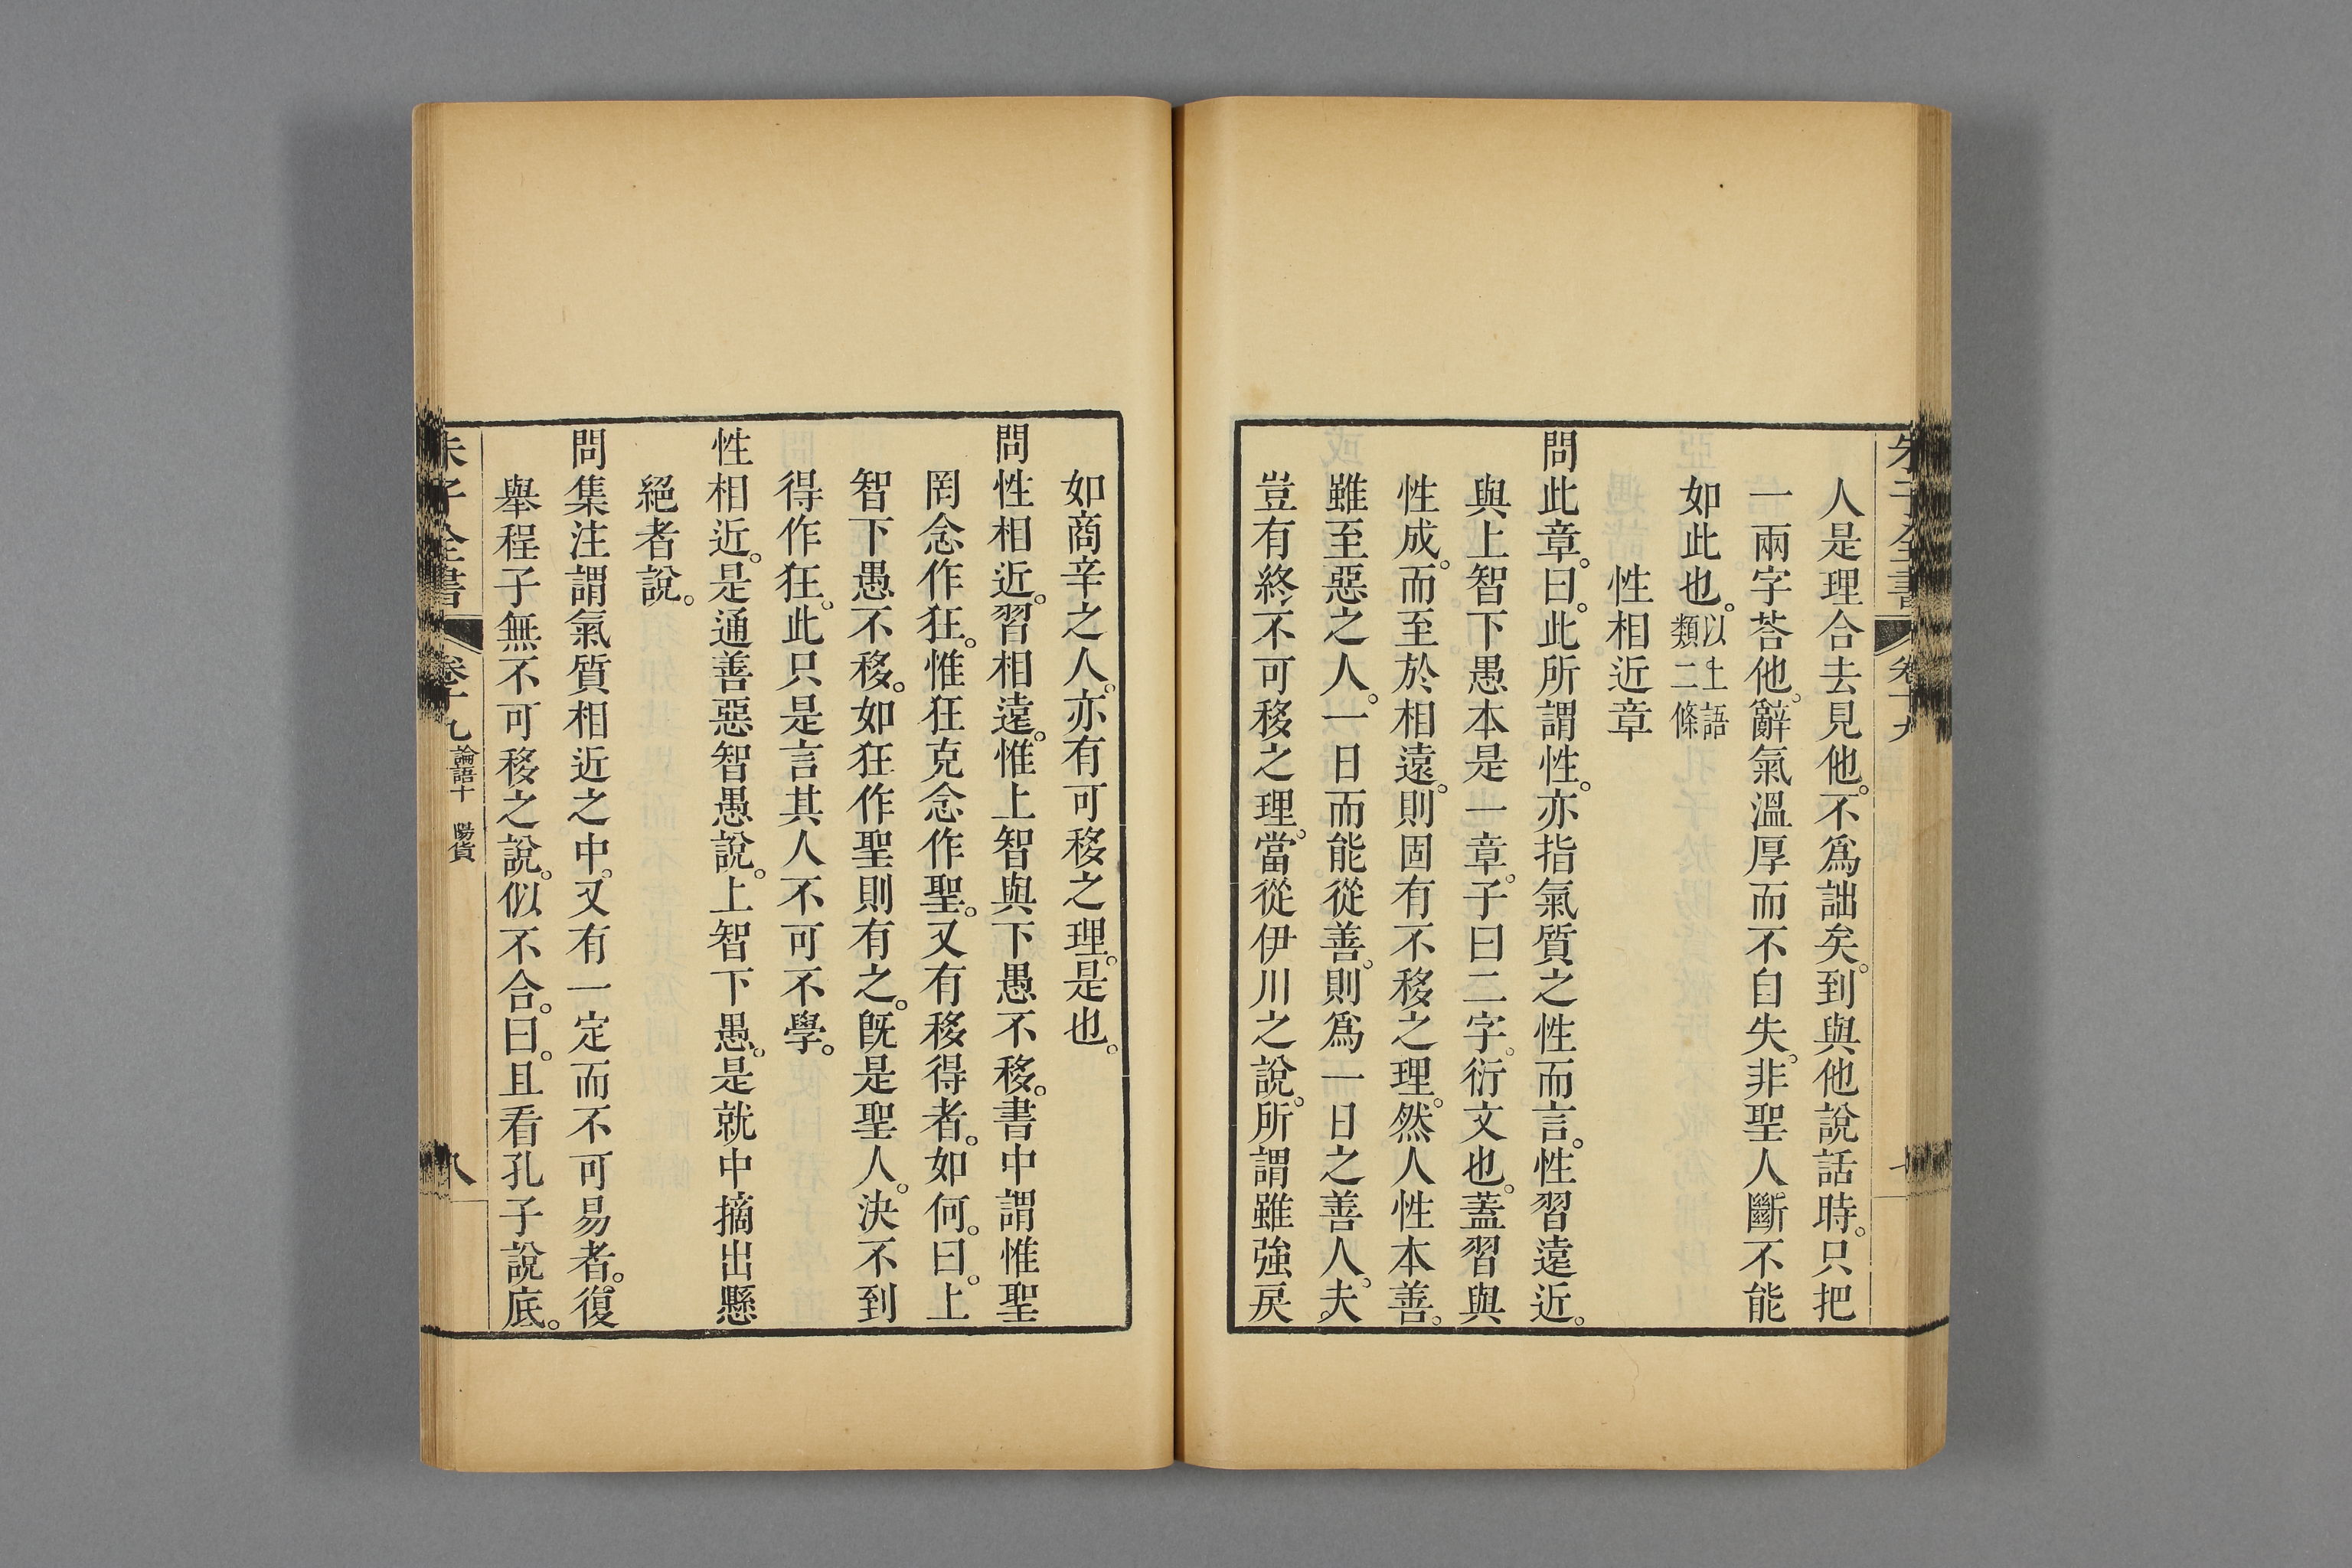 朱子全書 卷十九
人是理合去見他。不爲詘矣。到與他說話時。只把
一兩字荅他。辭氣溫厚而不自失。非聖人斷不能
如此也。以上語類二條
性相近章
問此章。曰。此所謂性。亦指氣質之性而言。性習遠近。
與上智下愚本是一章。子曰二字。衍文也。蓋習與
性成。而至於相遠。則固有不移之理。然人性本善。
雖至惡之人。一日而能從善。則爲一日之善人。夫。
豈有終不可移之理。當從伊川之說。所謂雖強戾
如商辛之人。亦有可移之理。是也。
問性相近。習相遠。惟上智與下愚不移。書中謂惟聖
罔念作狂。惟狂克念作聖。又有移得者。如何。曰。上
智下愚不移。如狂作聖則有之。旣是聖人。決不到
得作狂。此只是言其人不可不學。
性相近。是通善惡智愚說。上智下愚。是就中摘出懸
絕者說。
問集注謂氣質相近之中。又有一定而不可易者。復
舉程子無不可移之說。似不合。曰。且看孔子說底。
朱子全書 卷十九 論語十 陽貨 八